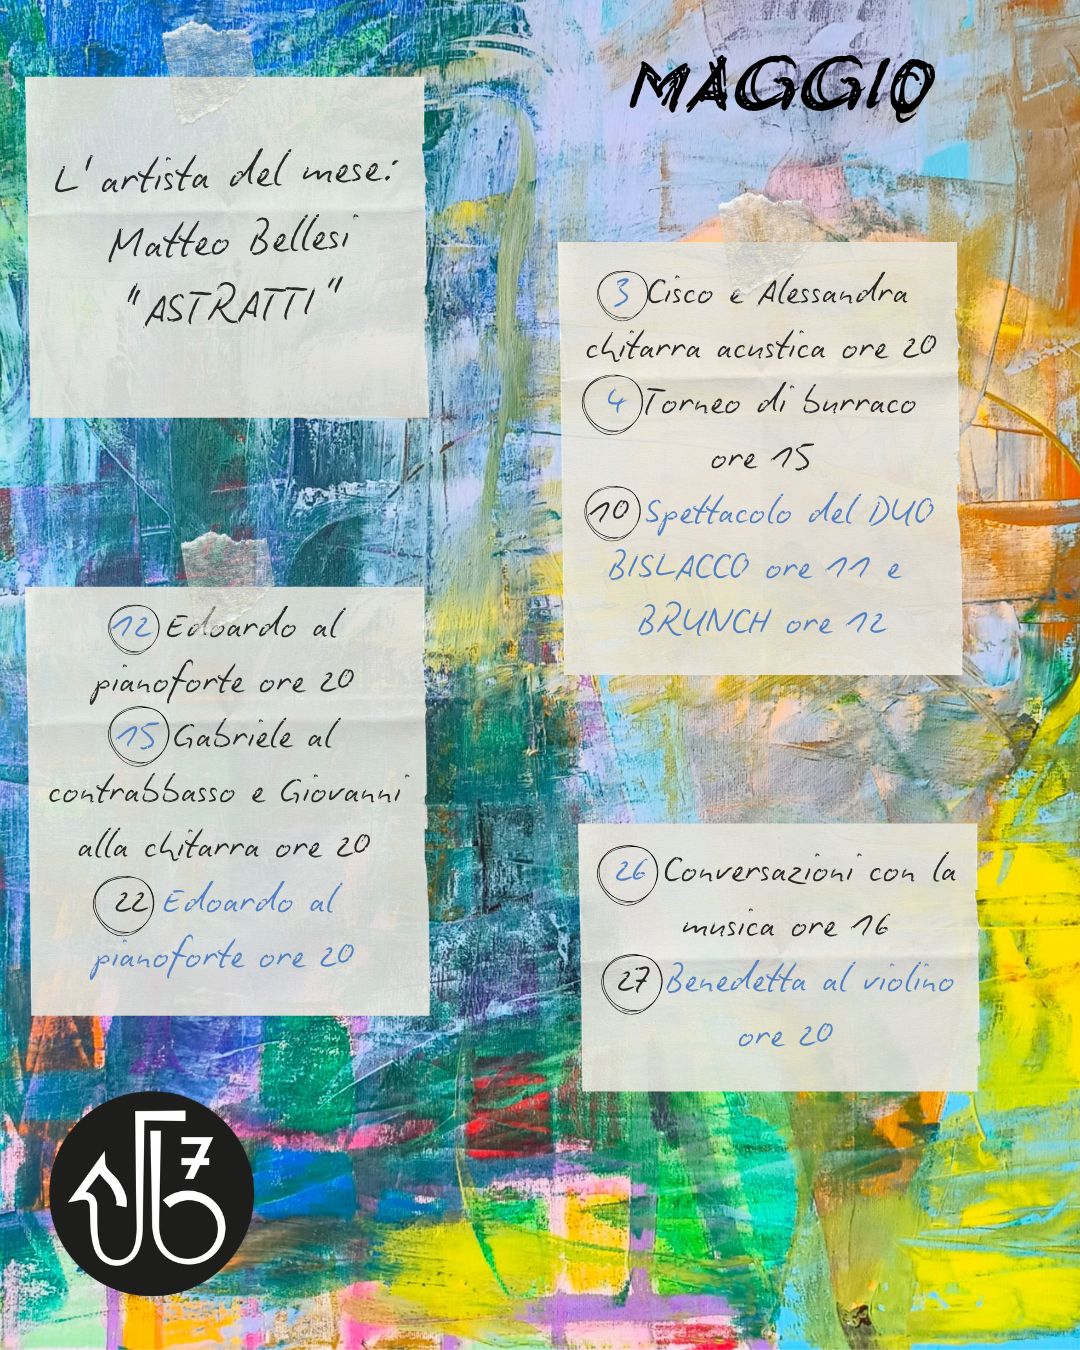 MAGGIO
L'artista del mese:
Matteo Bellesi
"ASTRATTI"
3 Cisco e Alessandra
chitarra acustica ore 20
4 Torneo di burraco
ore 15
10 Spettacolo del DUO
BISLACCO ore 11 e
BRUNCH ore 12
12 Edoardo al
pianoforte ore 20
15 Gabriele al
contrabbasso e Giovanni
alla chitarra ore 20
22 Edoardo al
pianoforte ore 20
26 Conversazioni con la
musica ore 16
27 Benedetta al violino
ore 20
7